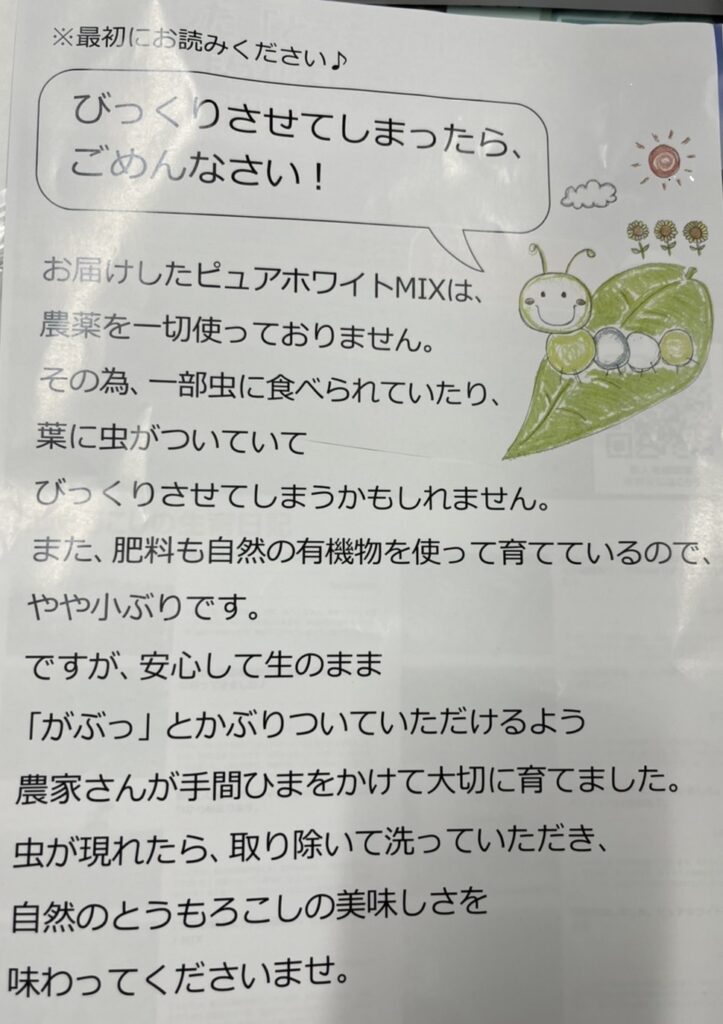 ※最初にお読みください♪
びっくりさせてしまったら、
ごめんなさい！
お届けしたピュアホワイトMIXは、
農薬を一切使っておりません。
その為、一部虫に食べられていたり、
葉に虫がついていて
びっくりさせてしまうかもしれません。
また、肥料も自然の有機物を使って育てているので、
やや小ぶりです。
ですが、安心して生のまま
「がぶっ」とかぶりついていただけるよう
農家さんが手間ひまをかけて大切に育てました。
虫が現れたら、取り除いて洗っていただき、
自然のとうもろこしの美味しさを
味わってくださいませ。